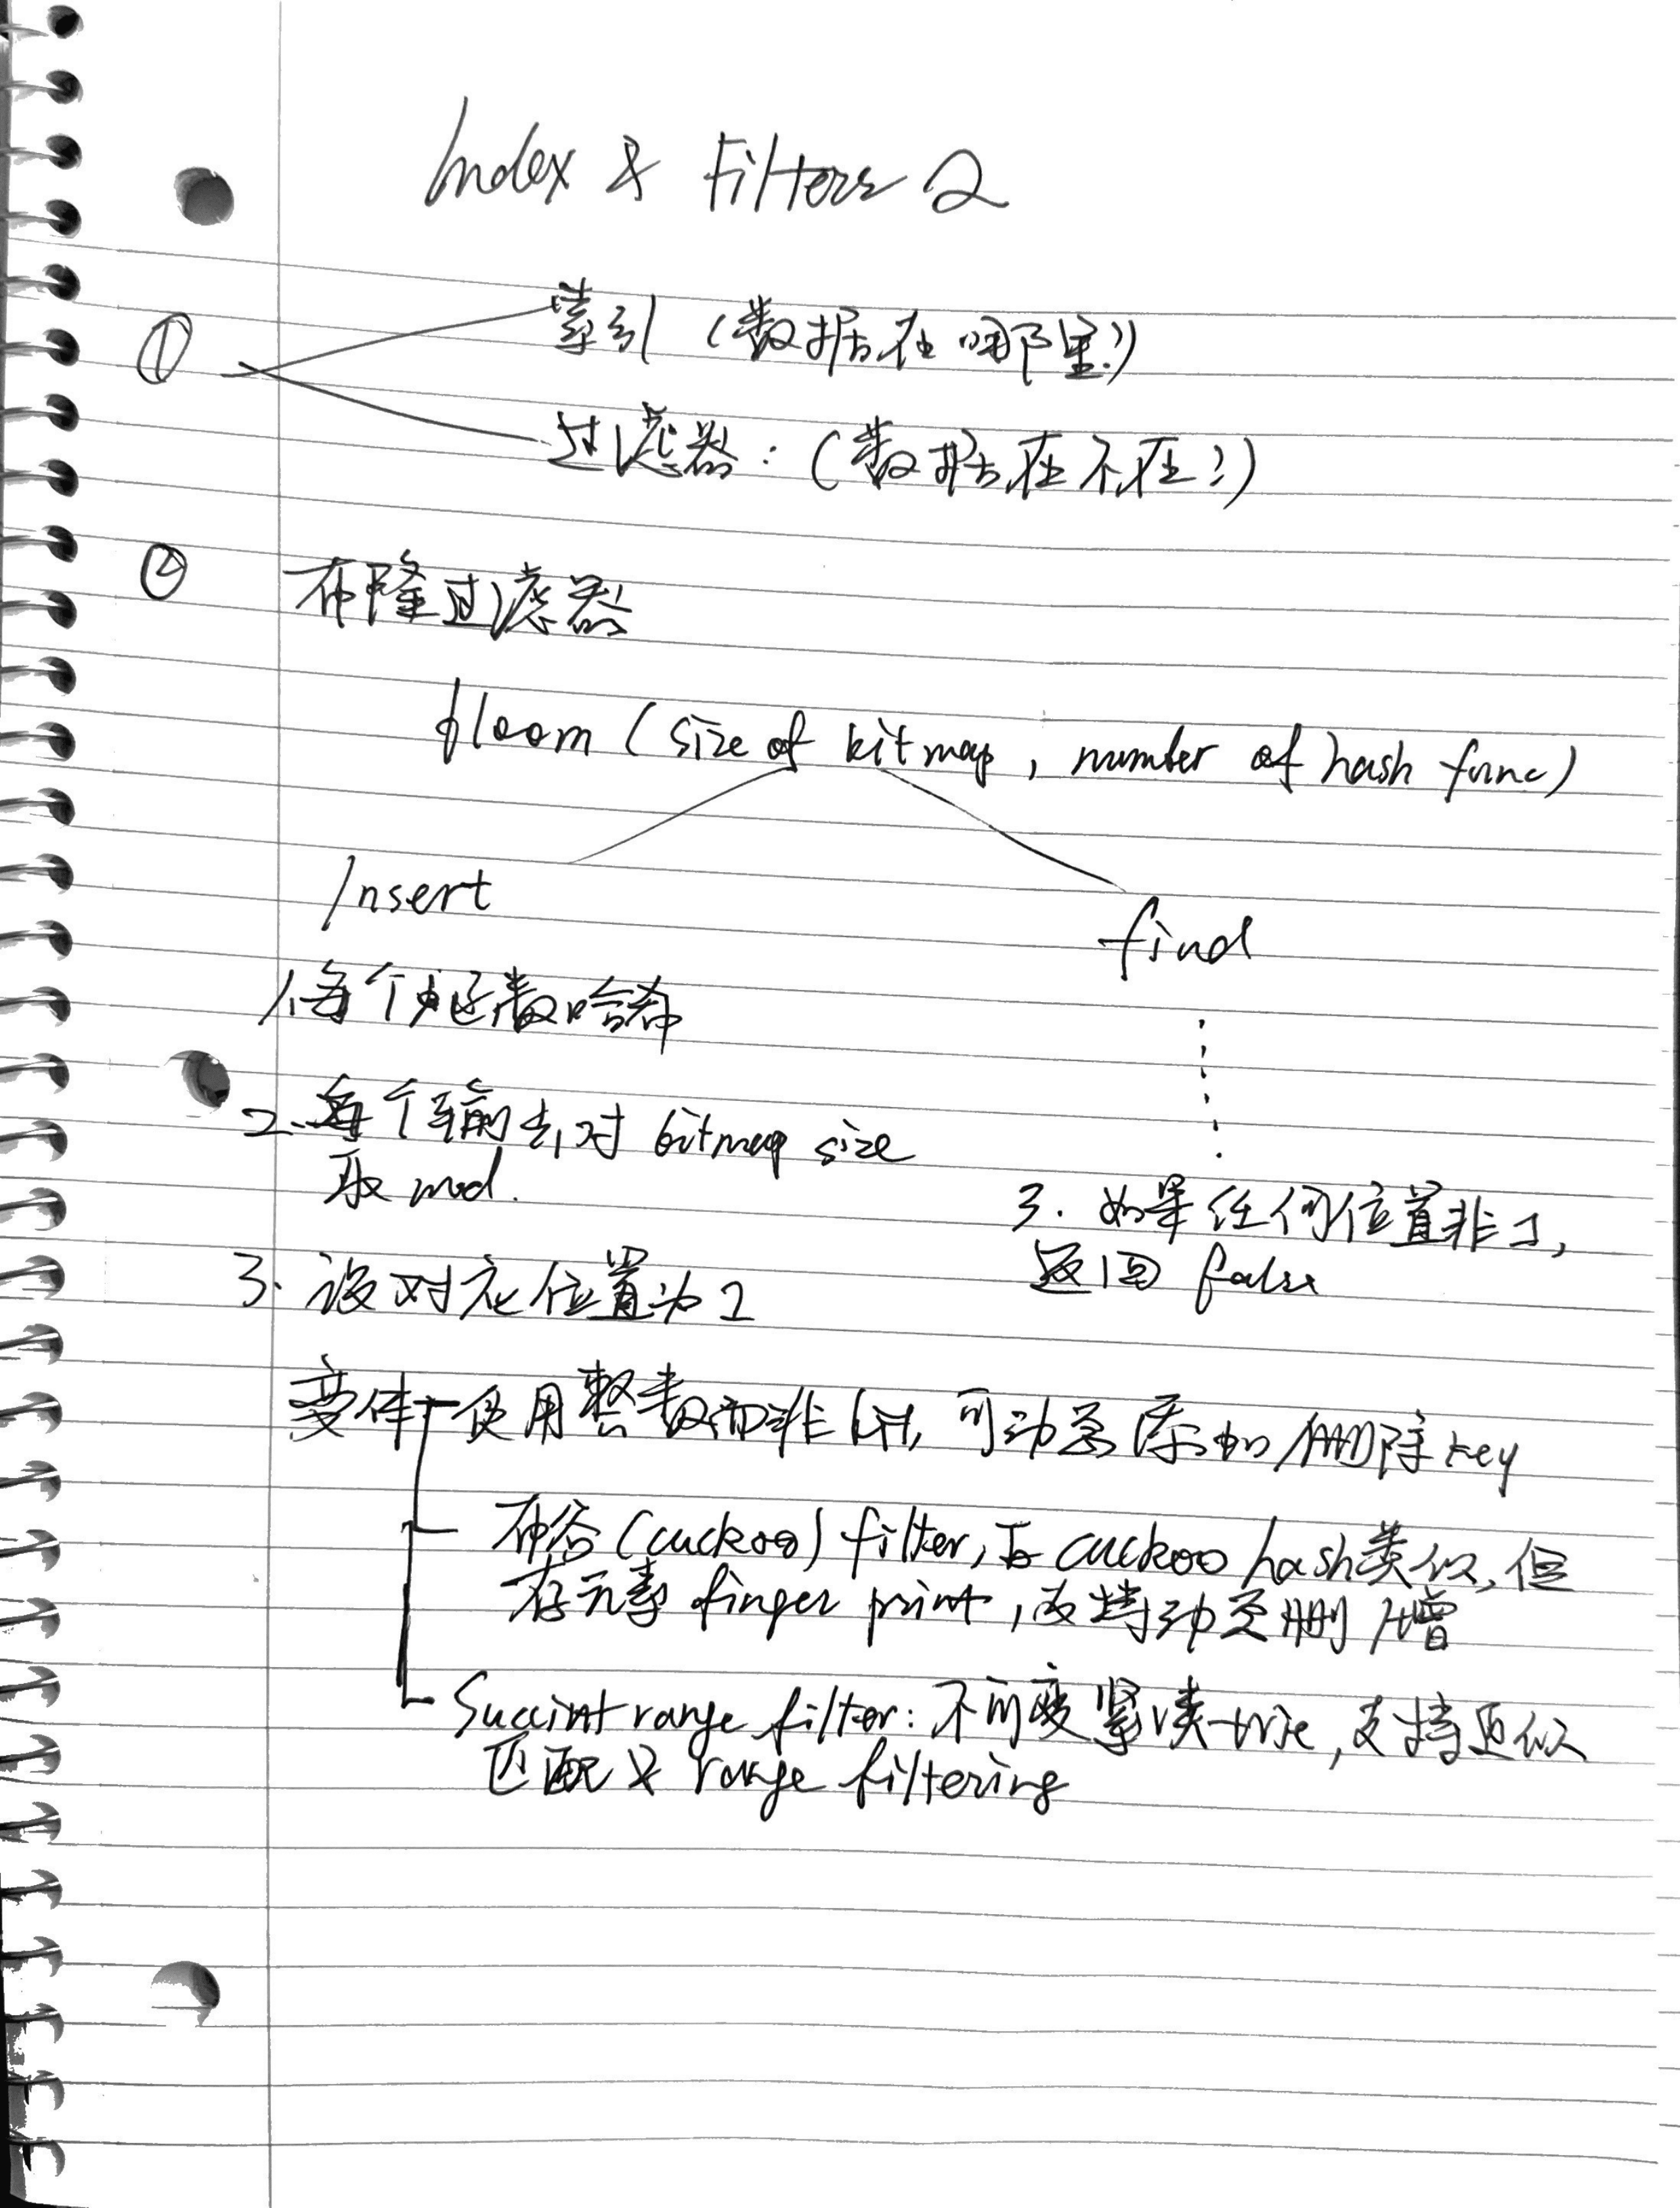 Index & Filters 2
①
索引 (数据在哪里?)
过滤器: (数据在不在?)
② 布隆过滤器
bloom (size of bitmap, number of hash func)
Insert
find
1. 每个函数哈希
2. 每个输出对 bitmap size
取 mod.
3. 设对应位置为1
3. 如果任何位置非1,
返回 false
变体 使用整数而非bit, 可动态添加/删除key
布谷 (cuckoo) filter, 与 cuckoo hash类似, 但
存元素 finger print, 支持动态删/增
Succint range filter: 不可变紧凑trie, 支持近似
匹配及 range filtering